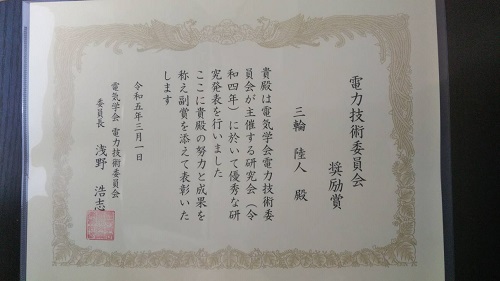 電力技術委員会
奨励賞
三輪 陸人 殿
貴殿は電気学会電力技術委
員会が主催する研究会（令
和四年）に於いて優秀な研
究発表を行いました
ここに貴殿の努力と成果を
称え副賞を添えて表彰いた
します
令和五年三月一日
電気学会 電力技術委員会
委員長 浅野 浩志